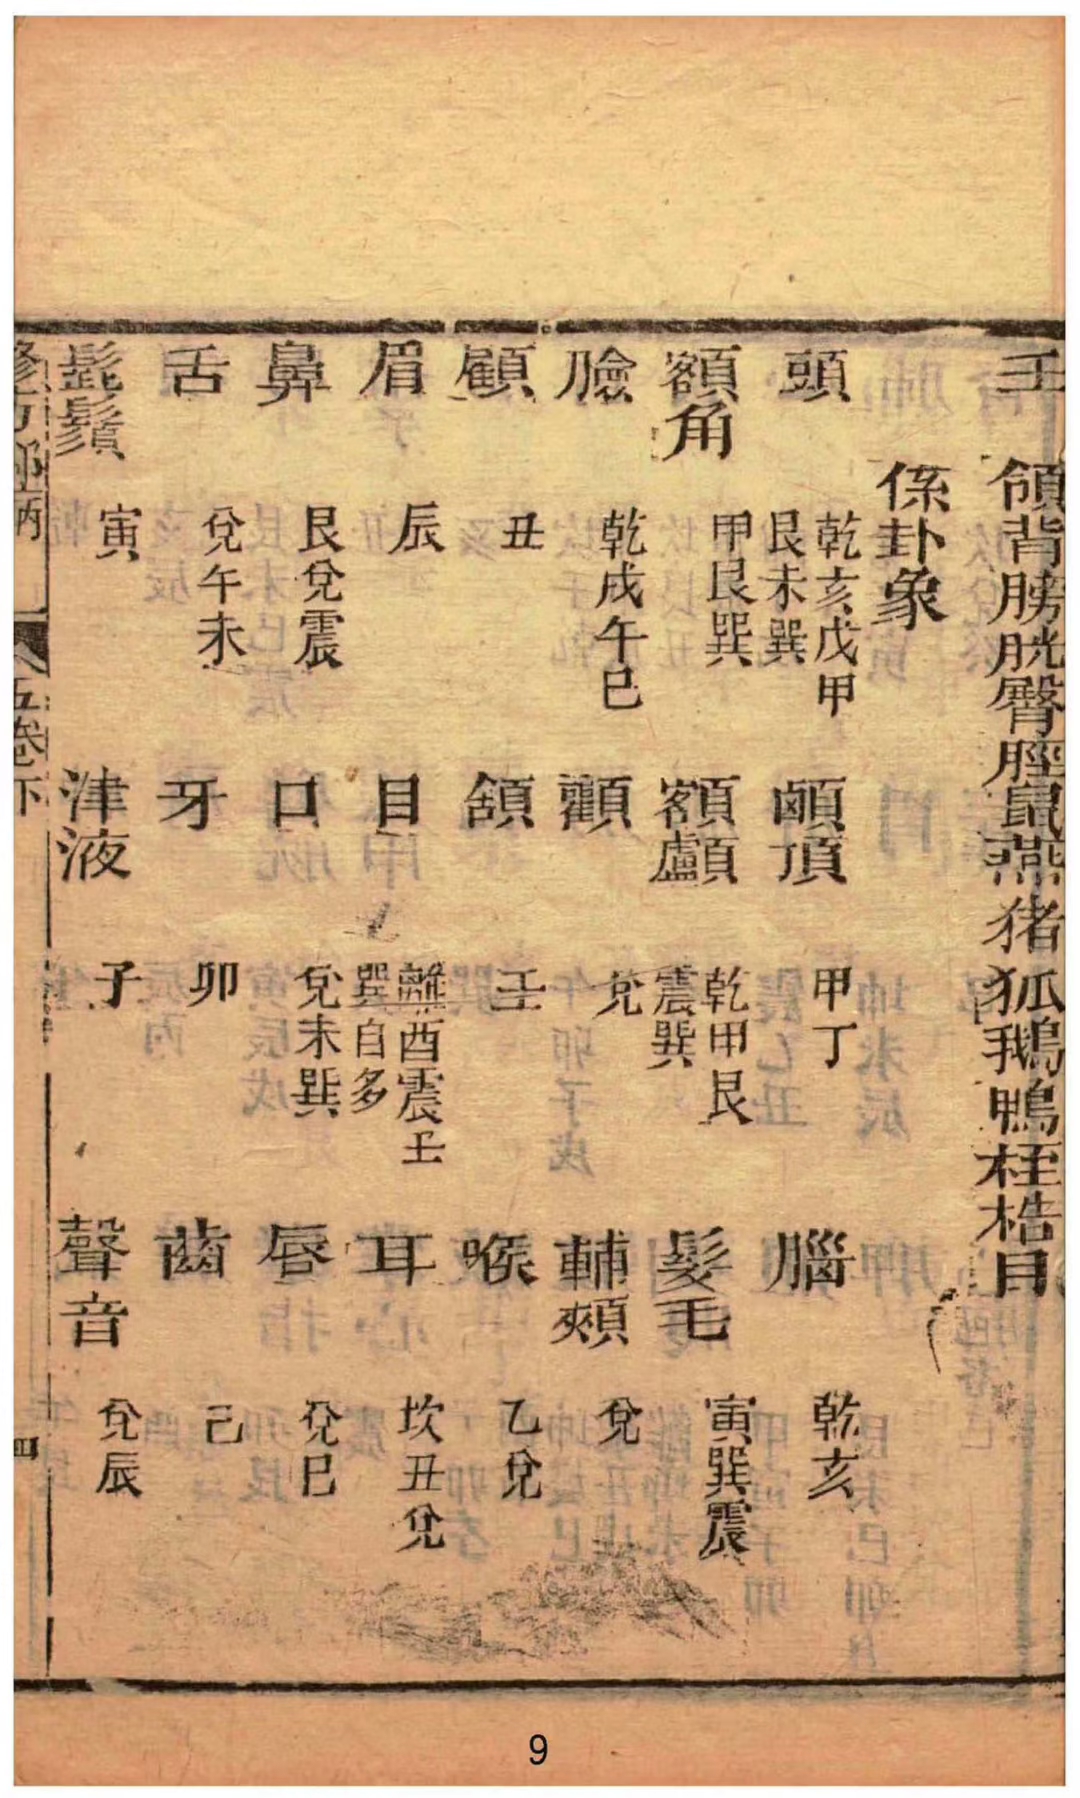 壬 領背膀胱臀脛鼠燕猪狐鵝鴨桎梏目
係卦象
頭 乾亥戊甲艮未巽 頔頂 甲丁 腦 乾亥
額角 甲艮巽 額顱 乾甲艮震巽 髮毛 寅巽震
臉 乾戌午巳 顴 兌 輔頰 兌
顧 丑 頷 壬 喉 乙兌
眉 辰 目 離酉震壬巽自多 耳 坎丑兌
鼻 艮兌震 口 兌未巽 唇 兌巳
舌 兌午未 牙 卯 齒 己
髭鬚 寅 津液 子 聲音 兌辰
五卷下 四
9